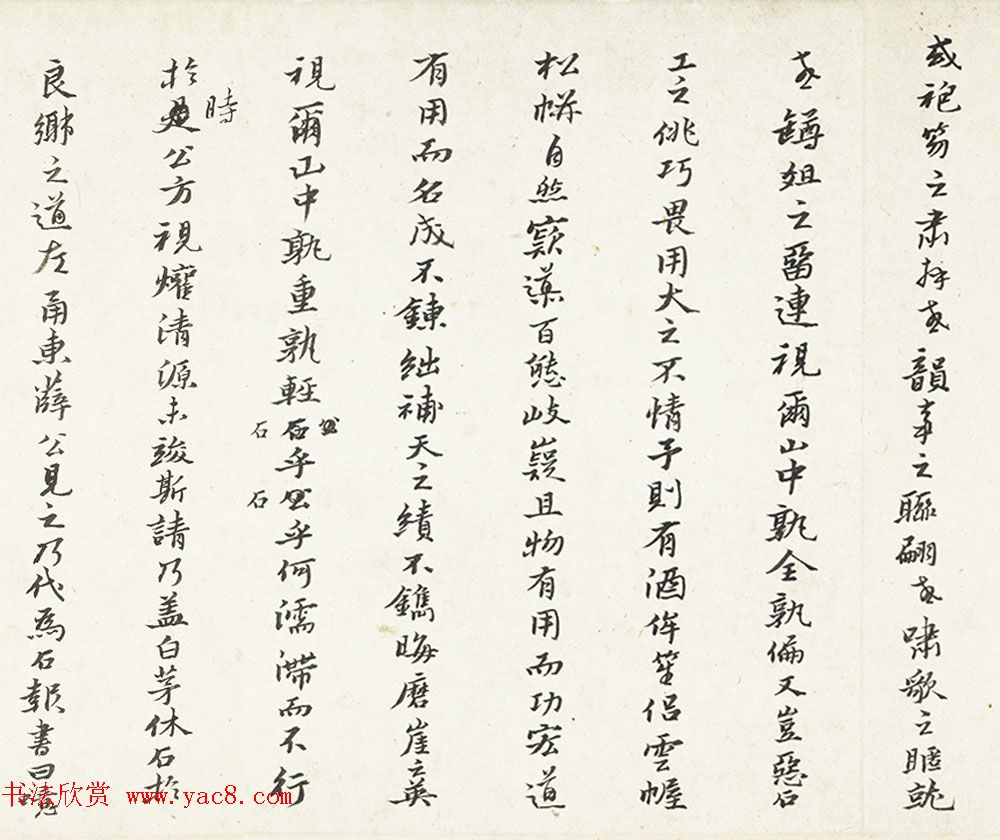 或袍笏之肅拜或韻事之聯翩或嘯歌之暱就
或罇俎之留連視爾山中孰全孰偏又豈惡石
工之佻巧畏用大之不情予則有酒侔笙侶雲幄
松帡自然竅漢百態岐嶷且物有用而功宏道
有用而名成不鍊絀補天之績不鐫晦磨崖之英
視爾山中孰重孰輕石乎公乎何濡滯而不行
石
石
時
於是公方視爟清源未竣斯請乃蓋白茅休石於
良鄉之道左甬東薛公見之乃代為石報書曰
书法欣赏 www.yac8.com